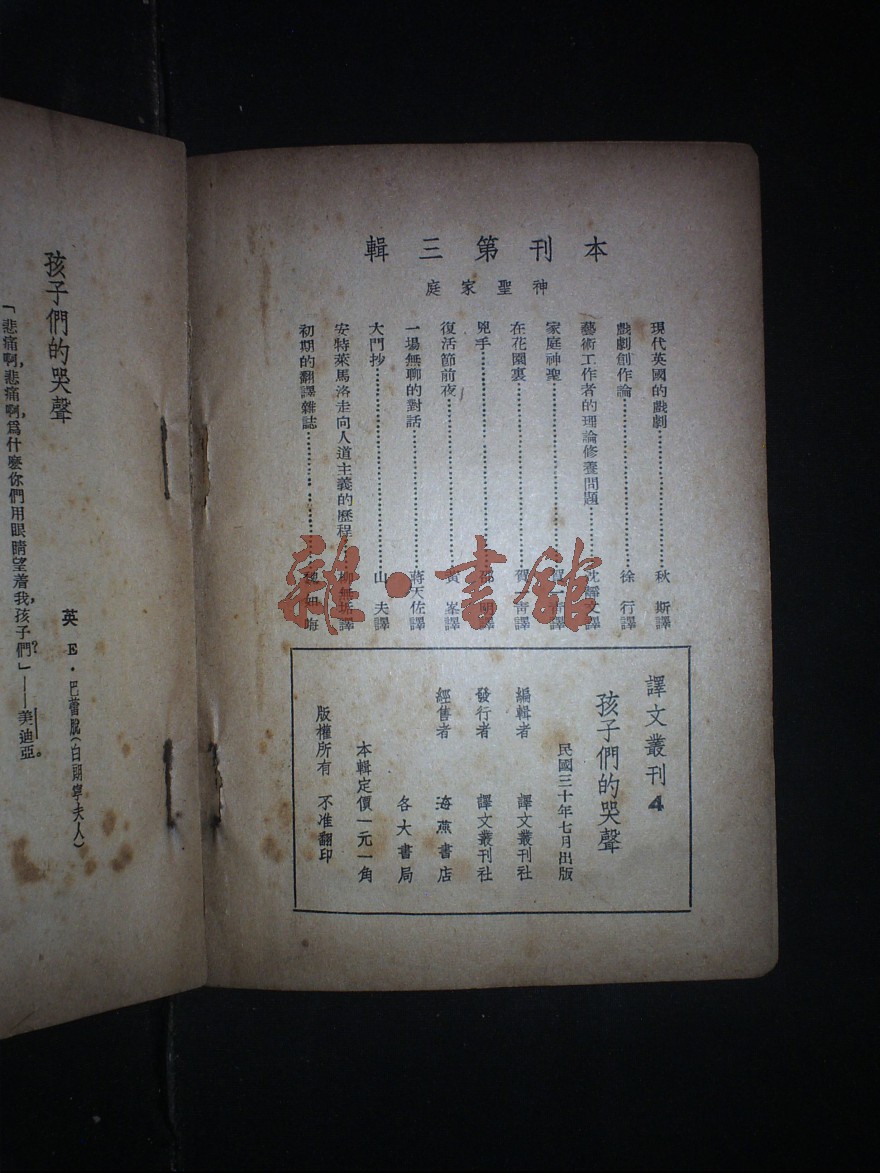 本刊第三輯
神聖家庭
現代英國的戲劇……秋斯譯
戲劇創作論……徐行譯
藝術工作者的理論修養問題……沈
家庭神聖……
在花園裏……賀青譯
兇手……邵明譯
復活節前夜……黃峯譯
一場無聊的對話……蔣天佐譯
大門抄……山夫譯
安特萊馬洛走向人道主義的歷程……柳無垢譯
初期的翻譯雜誌……魏如晦
譯文叢刊4
孩子們的哭聲
民國三十年七月出版
編輯者 譯文叢刊社
發行者 譯文叢刊社
經售者 海燕書店
各大書局
本輯定價一元一角
版權所有 不准翻印
孩子們的哭聲
英 E·巴蕾脫(白朗寧夫人)
「悲痛啊,悲痛啊,爲什麽你們用眼睛望着我,孩子們?」——美迪亞。
雜·書館